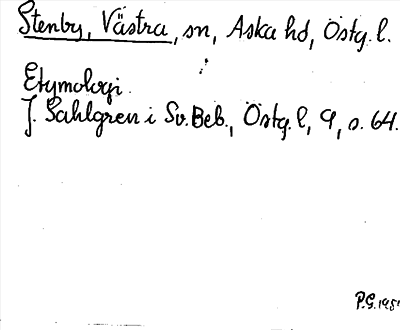 Stenby, Västra, sn, Aska hd, Östg. l.
Etymologi.
J. Sahlgren i Sv. Beb., Östg. l, 9, s. 64.
P.G.